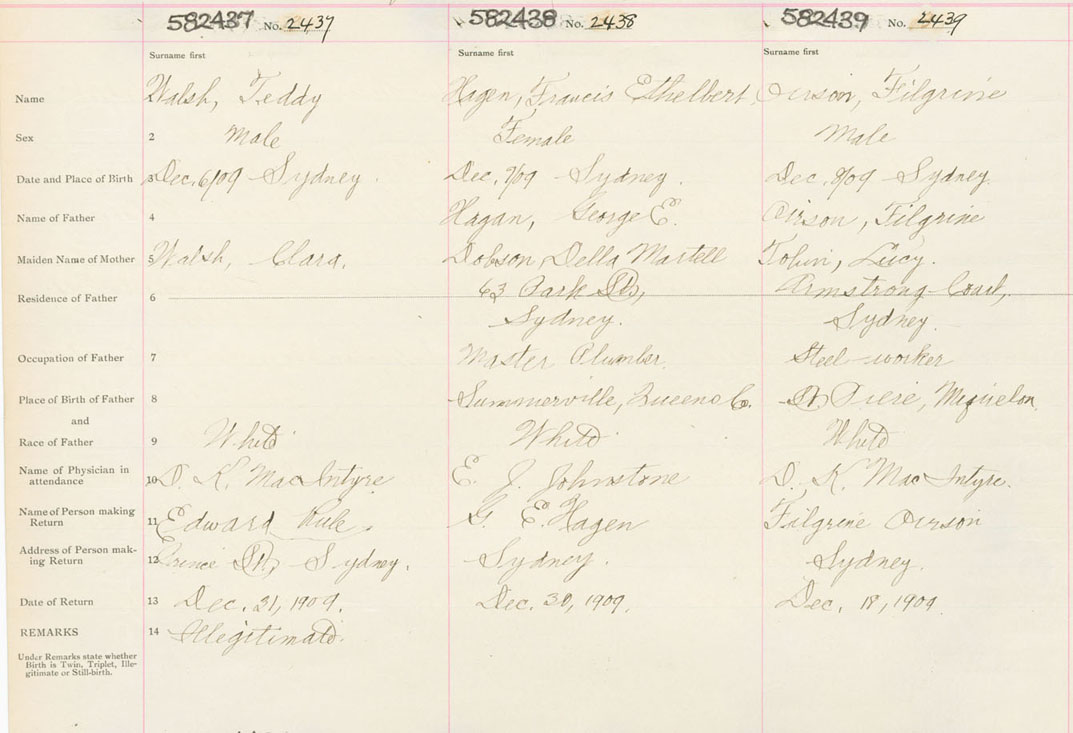 582437 No. 2437
582438 No. 2438
582439 No. 2439
Surname first
Surname first
Surname first
Name
Walsh, Teddy
Hagen, Francis Ethelbert
Oirson, Filgrine
Sex 2
Male
Female
Male
Date and Place of Birth 3
Dec. 6/09 Sydney.
Dec. 7/09 Sydney.
Dec. 8/09 Sydney.
Name of Father 4
Hagan, George E.
Oirson, Filgrine
Maiden Name of Mother 5
Walsh, Clara.
Dobson, Della Martell
Tobin, Lucy.
Residence of Father 6
63 Park St,
Sydney.
Armstrong Court,
Sydney.
Occupation of Father 7
Master Plumber.
Steel-worker
Place of Birth of Father 8
Summerville, Queens Co.
St Piere, Miquelon.
and
Race of Father 9
White
White
White
Name of Physician in
attendance 10
D. K. MacIntyre
E. J. Johnstone
D. K. MacIntyre.
Name of Person making
Return 11
Edward
G. E. Hagen
Filgrine Oirson
Address of Person mak-
ing Return 12
Prince St, Sydney.
Sydney.
Sydney.
Date of Return 13
Dec. 31, 1909.
Dec. 30, 1909.
Dec. 18, 1909.
REMARKS 14
Illegitimate.
Under Remarks state whether
Birth is Twin, Triplet, Ille-
gitimate or Still-birth.